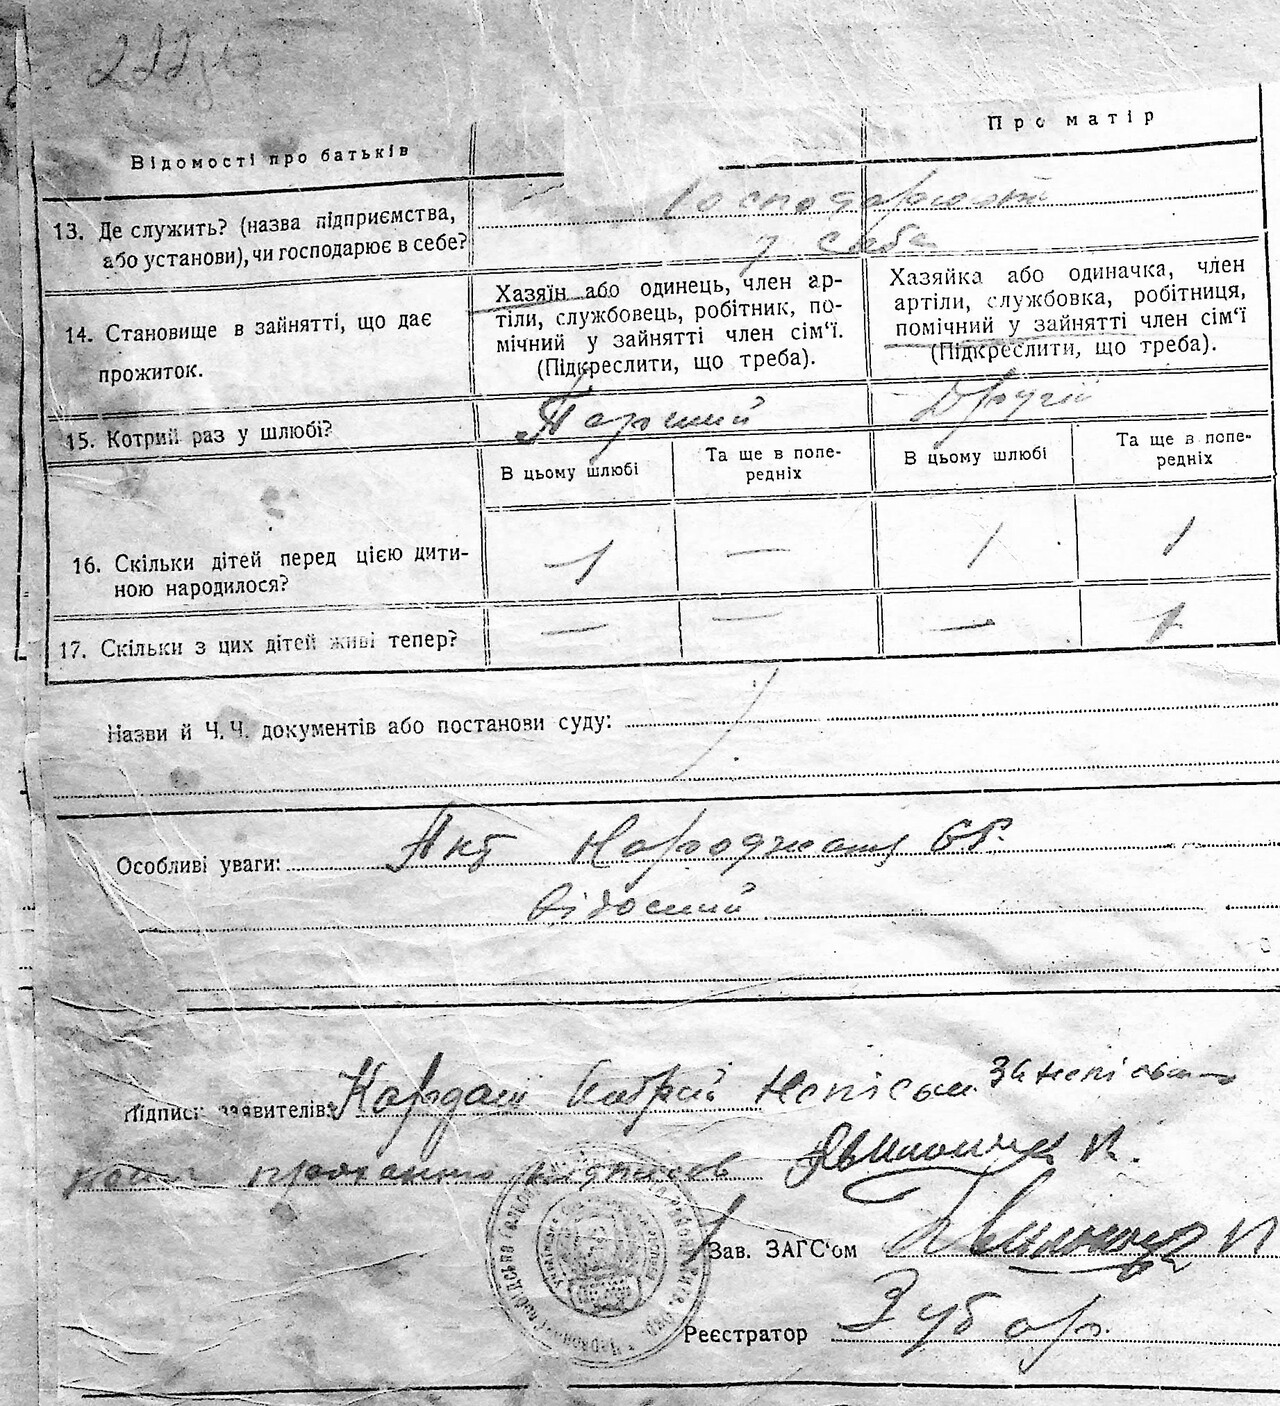 222
Відомості про батьків
Про матір
13. Де служить? (назва підприємства,
або установи), чи господарює в себе?
Господарюють
у себе
14. Становище в зайнятті, що дає
прожиток.
Хазяїн або одинець, член ар-
тіли, службовець, робітник, по-
мічний у зайнятті член сім‘ї.
(Підкреслити, що треба).
Хазяйка або одиначка, член
артіли, службовка, робітниця,
помічний у зайнятті член сім‘ї
(Підкреслити, що треба).
15. Котрий раз у шлюбі?
Перший
Другий
В цьому шлюбі
Та ще в попе-
редніх
В цьому шлюбі
Та ще в попе-
редніх
16. Скільки дітей перед цією дити-
ною народилося?
1 — 1 1
17. Скільки з цих дітей живі тепер?
— — — 1
Назви й Ч.Ч. документів або постанови суду:
Особливі уваги: Акт народження
Підписи заявителів:
Зав. ЗАГС‘ом
Реєстратор Зубар